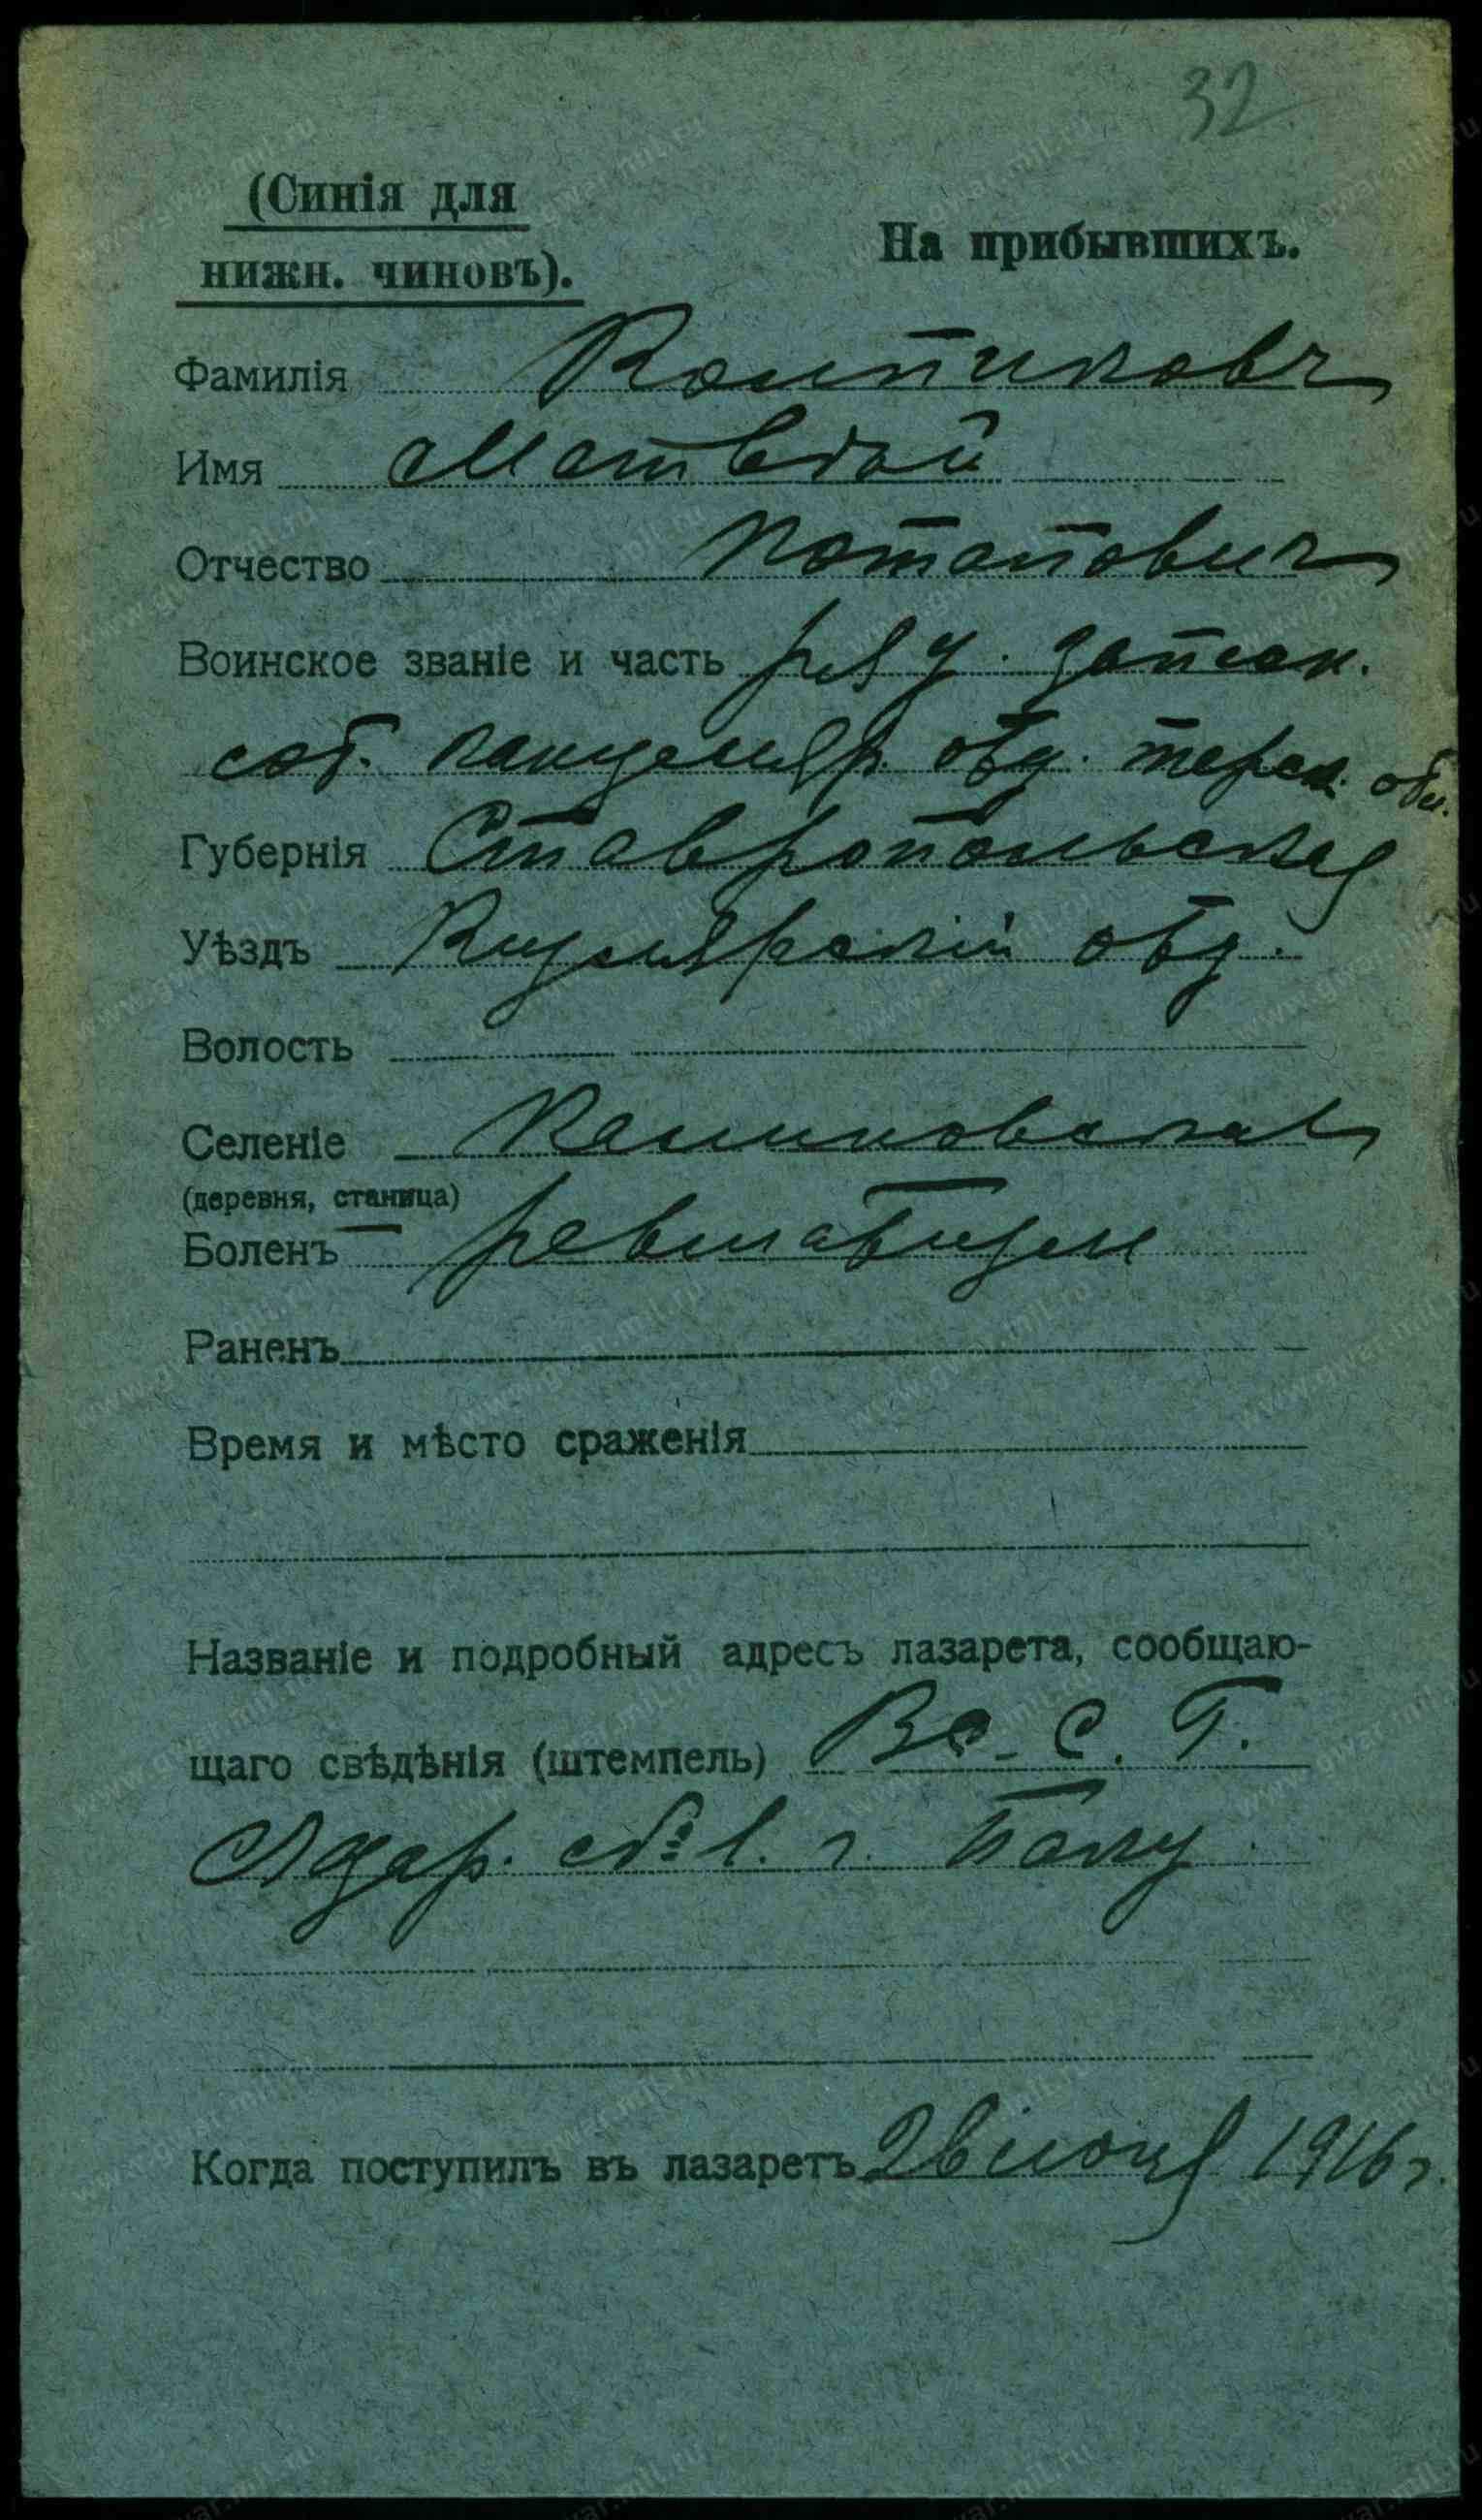 32
(Синія для
нижн. чиновъ).
На прибывшихъ.
Фамилія Колтиковъ
Имя Матвѣй
Отчество Потапович
Воинское званіе и часть ряд. запасн.
отд. терск. обл.
Губернія Ставропольская
Уѣздъ Кизлярскій отд.
Волость
Селеніе Калиновская
(деревня, станица)
Боленъ ревматизм
Раненъ
Время и мѣсто сраженія
Названіе и подробный адресъ лазарета, сообщаю-
щаго свѣдѣнія (штемпель) В с. С. Г.
Лазар. № 1. г. Баку
Когда поступилъ въ лазаретъ 26 июня 1916 г.